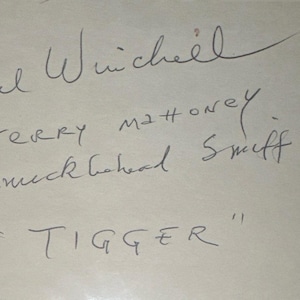 ul Winchell
Jerry Mahoney
nucklehead Smiff
" TIGGER "